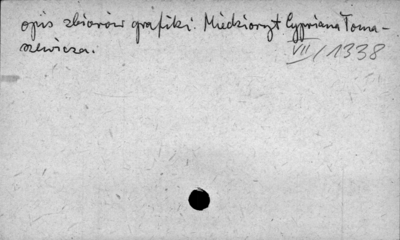 opis zbiorów grafiki. Miedzioryt Cypriana Toma-
szewicza.
VII/1338